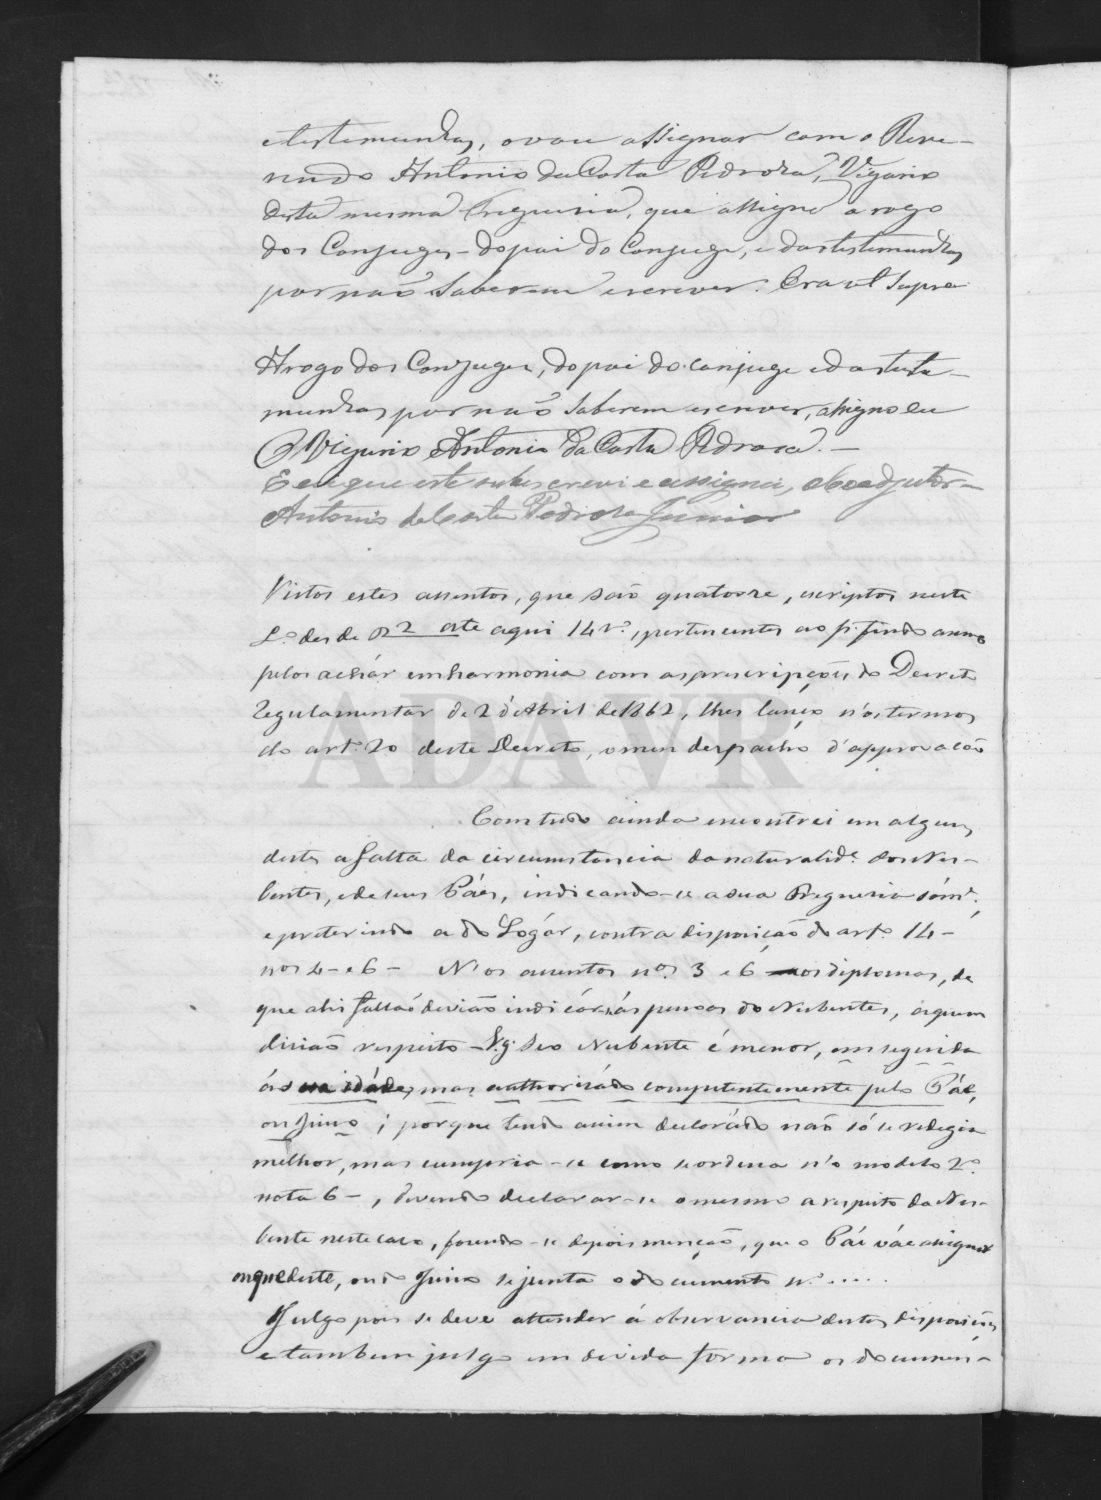 e testemunhas, o vou assignar com o Reve-
rendo Antonio da Costa Pedroza, Vigario
desta mesma Freguesia, que assigno a rogo
dos Conjuges - do pai do Conjuge, e das testemunhas
por não saberem escrever. Era ut supra
A rogo dos Conjuges, do pai do conjuge e das teste-
munhas por não saberem escrever, assigno eu
O Vigario Antonio da Costa Pedroza. -
E eu que este subscrevi e assignei, o Coadjutor -
Antonio da Costa Pedroza Junior
Vistos estes assentos, que são quatorze, escriptos neste
L.º desde o 2 até aqui 14 v.º, pertencentes ao p. findo anno
pelos achár em harmonia com as prescripções do Decreto
Regulamentar de 2 d'Abril de 1862, lhes lanço n'os termos
do art.º 20 deste Decreto, o meu despacho d'approvação
Com tudo ainda encontrei em alguns
destes a falta da circumstancia da naturalid.e dos Nu-
bentes, e de seus Páes, indicando-se a sua Freguesia sóm.e,
e preterindo a do Logár, contra disposição do art.º 14 -
nos 4 - e 6 - N'os assentos n.os 3 e 6 os diplomas, de
que ahi fallaõ deviaõ indicár ás pessoas do Nubentes, a quem
diziaõ respeito - V.g. Se o Nubente é menor, em seguida
á sua idáde, mas authorizádo competentemente pelo Páe,
ou Juizo; porque tendo assim declarádo não só se redegia
melhor, mas cumpria-se como se ordena n'o modelo 2.º
nota 6 -, devendo declarar-se o mesmo a respeito da Nu-
bente neste caso, fazendo-se depois menção, que o Páe váe assignar
ou que deste, ou do Juizo se junta o documento n.º .....
Julgo pois se deve attender á observancia destas disposições
e tambem julgo em devida forma os documen-
ADAVR